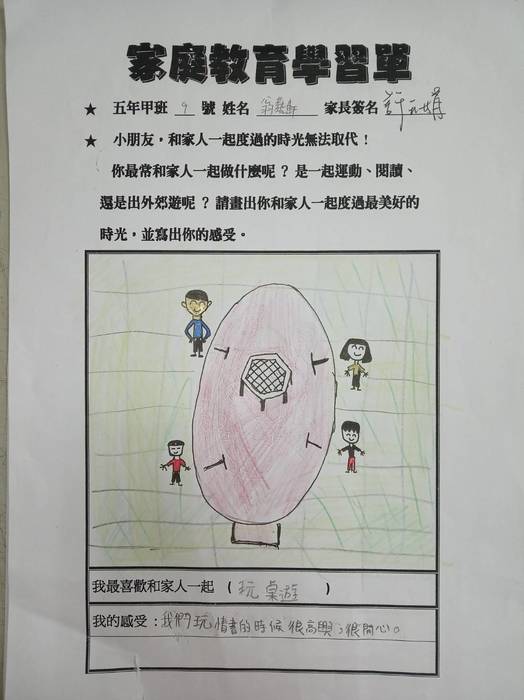 家庭教育學習單
★ 五年甲班 9 號 姓名 家長簽名
★ 小朋友，和家人一起度過的時光無法取代！
你最常和家人一起做什麼呢？是一起運動、閱讀、
還是出外郊遊呢？請畫出你和家人一起度過最美好的
時光，並寫出你的感受。
我最喜歡和家人一起 ( 玩桌遊 )
我的感受：我們玩情書的時候很高興，很開心。